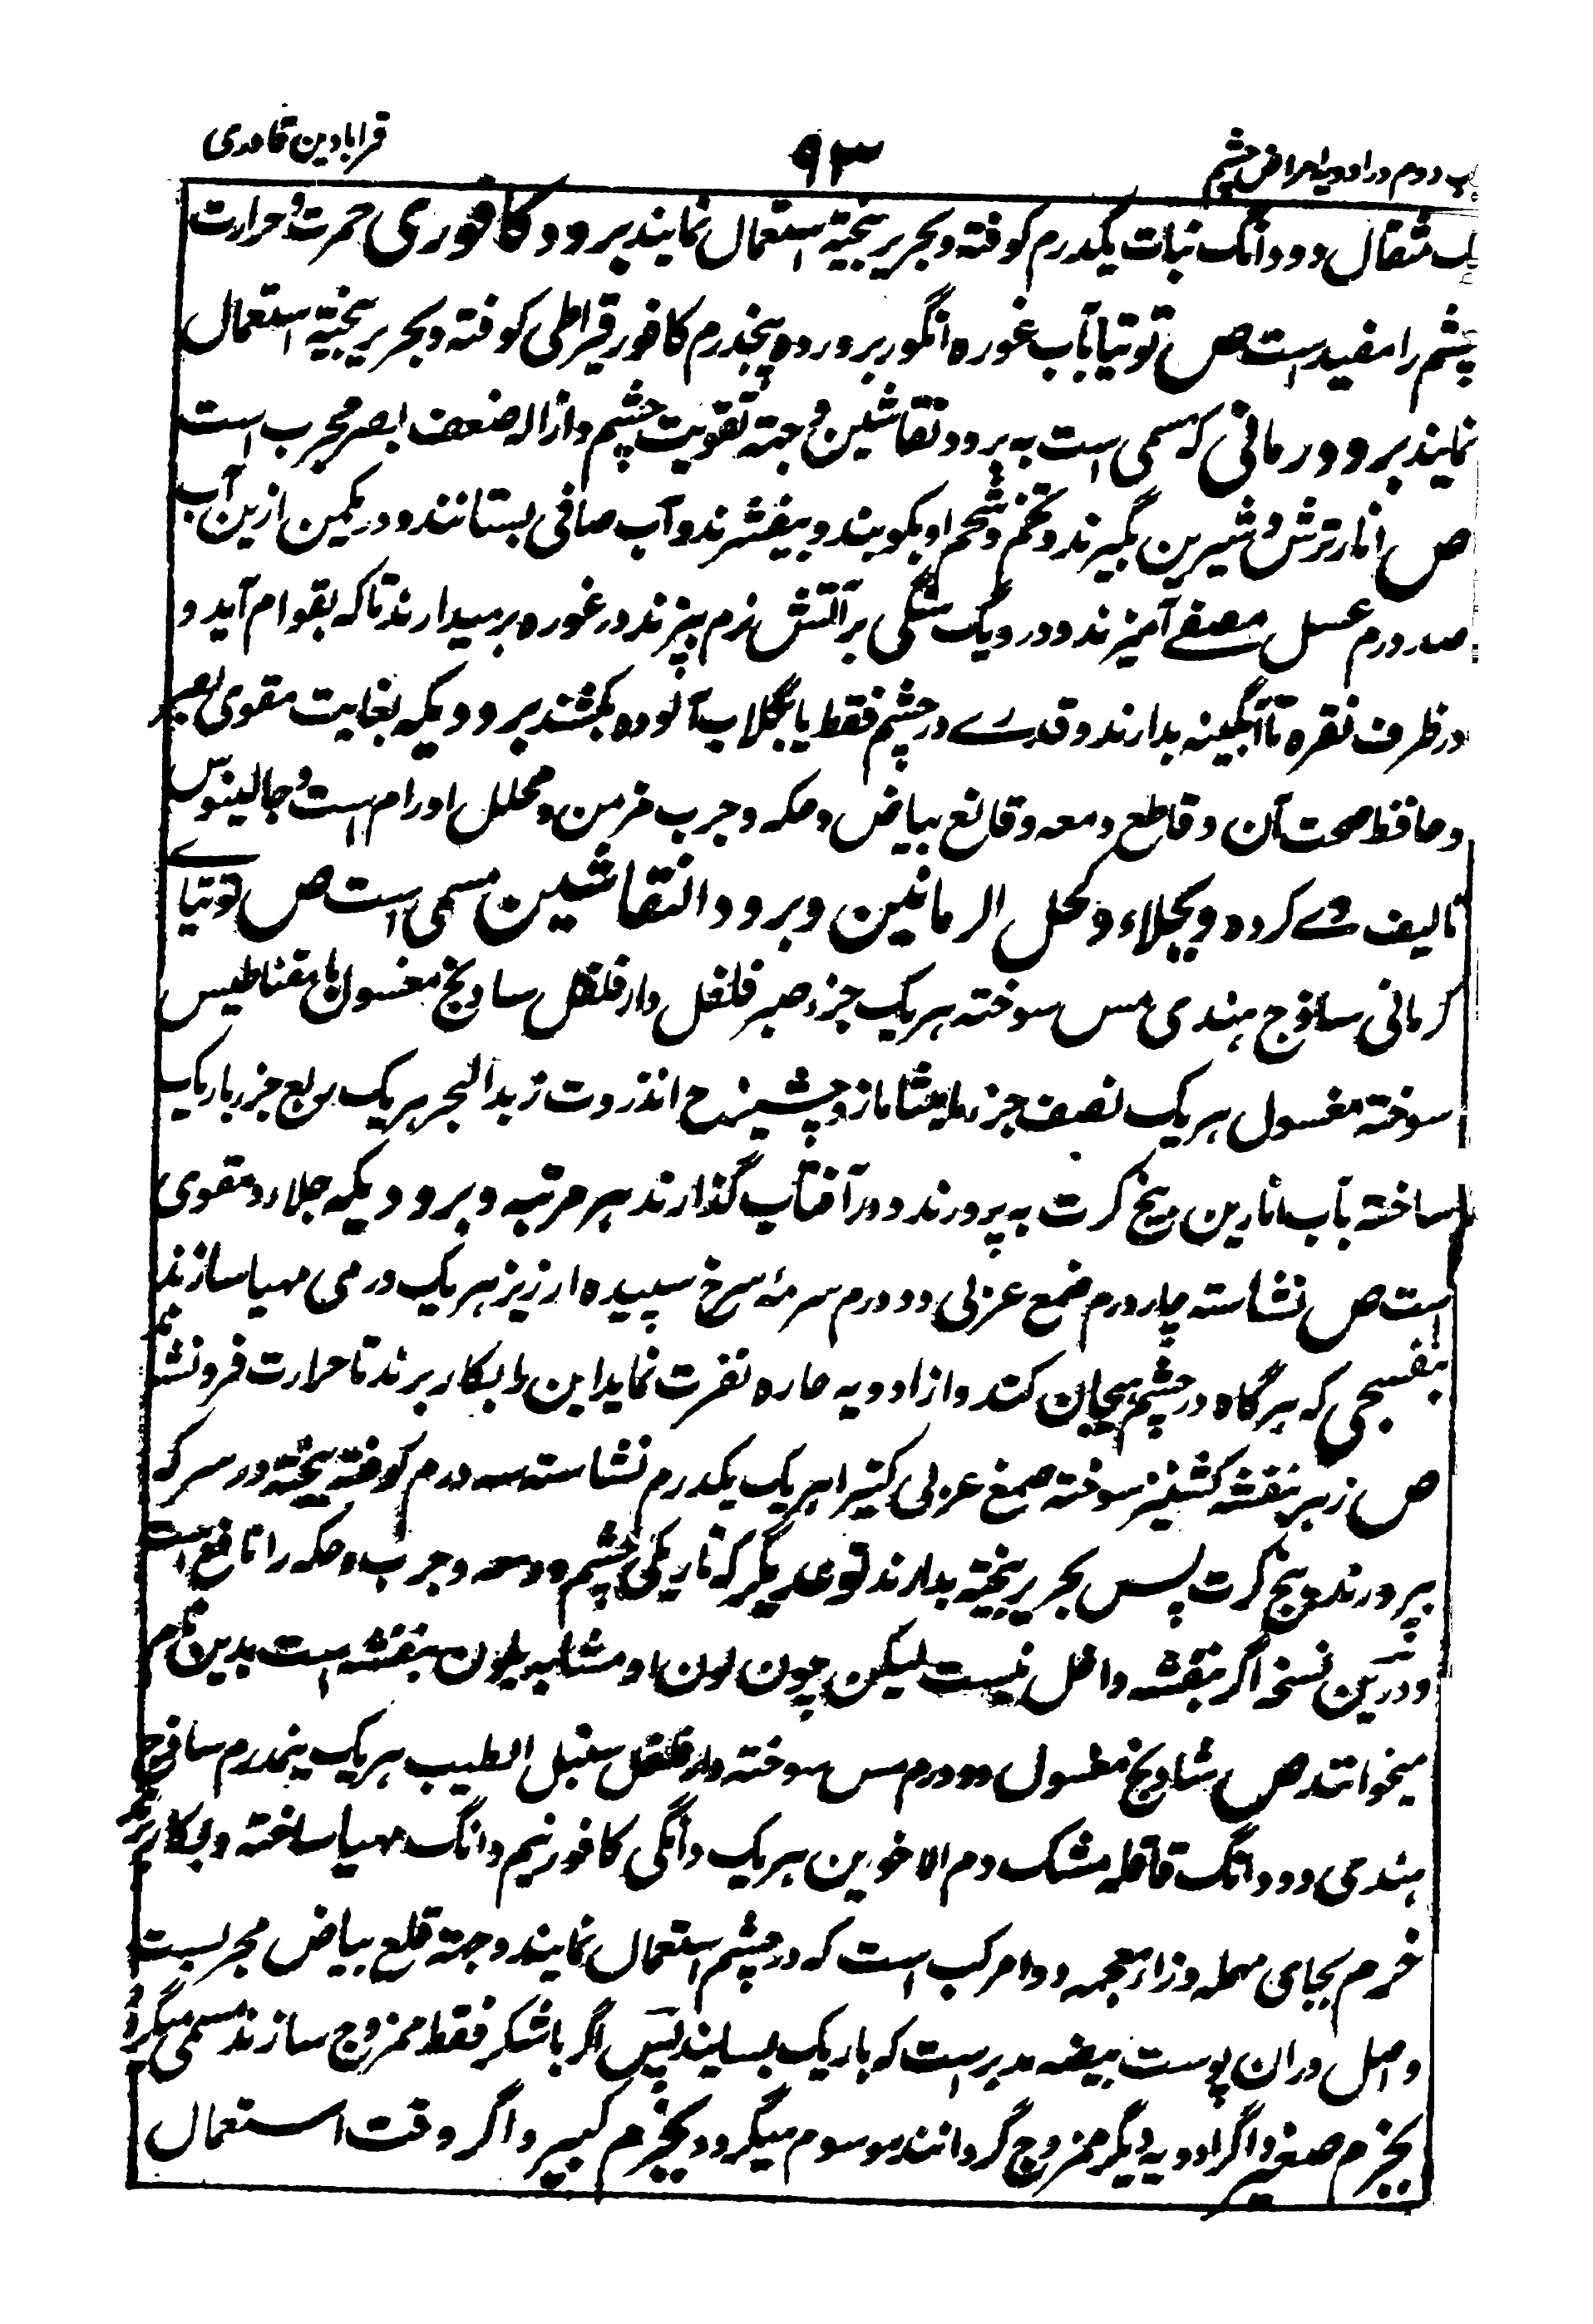 باب دوم در ادویه امراض چشم ۹۳ قرابادین قادری
یک مثقال دو دانگ نبات یکدرم کوفته و بحریر بیخته استعمال نمایند برود کافوری حمرت و حرارت
چشم را مفید است ص توتیا بآب غوره انگور پرورده پنجدرم کافور قیراطی کوفته و بحریر بیخته استعمال
نمایند برود رمانی که مسمی است به برود نقاشین و جهته تقویت چشم و ازاله ضعف بصر مجرب است
ص انار ترش و شیرین بگیرند و تخم و شحم او بکوبند و بیفشرند و آب صافی بستانند و در یکمن ازین آب
صد درم عسل مصفے آمیزند و در دیک سنگی بر آتش نرم بپزند و رغوه برمیدارند تا که بقوام آید و
در ظرف نقره یا آبگینه بدارند و قدرے در چشم فقط یا بگلاب آلوده بکشند برودیکه بغایت مقوی بصر
و حافظ صحت آن و قاطع دمعه و قالع بیاض و حکه و جرب مزمن و محلل اورام است و جالینوس
تالیف وے کرده و بجلاء و کحل الرمانین و برود النقاشین مسمی است ص توتیاے
کرمانی ساذج هندی مس سوخته هریک جزء صبر فلفل دارفلفل سادنج مغسول مقناطیس
سوخته مغسول هریک نصف جزء مامیثا مازو چشیزج انذروت زبدالبحر هریک ربع جزء باریک
ساخته بآب انارین پنج کرت به پرورند و در آفتاب گذارند هر مرتبه و برودیکه جلاء و مقوی
است ص نشاسته چار درم صمغ عربی دو درم سرمهٔ سرخ سپیده ارزیز هریک درمی مهیا سازند
بنفسجی که هرگاه در چشم هیجان کند و از ادویه حاره نفرت نماید این را بکار برند تا حرارت فرو نشاند
ص زهر بنفشه کشنیز سوخته صمغ عربی کتیرا هریک یکدرم نشاسته سه درم کوفته بیخته در سرکه
بپرورند پنج کرت پس بحریر بیخته بدارند نوعدیگر که تاریکی چشم و دمعه و جرب و حکه را نافع است
و درین نسخه اگر بنفشه داخل نیست لیکن چون لون او مشابه بلون بنفشه است بدین نام
میخوانند ص شادنج مغسول دو درم مس سوخته دارفلفل سنبل الطیب هریک نیمدرم ساذج
هندی دو دانگ قاقله مشک دم الاخوین هریک دانگی کافور نیم دانگ مهیا ساخته و بکار برند
خرم بجای مهمله و زاء معجمه دوا مرکب است که در چشم استعمال نمایند و جهته قلع بیاض مجربست
و اصل دران پوست بیضه مدبر است که باریک بسایند پس اگر با شکر فقط ممزوج سازند مسمی میگردد
بخرم صغیر و اگر ادویه دیگر ممزوج گردانند موسوم میگردد بخرم کبیر و اگر وقت استعمال